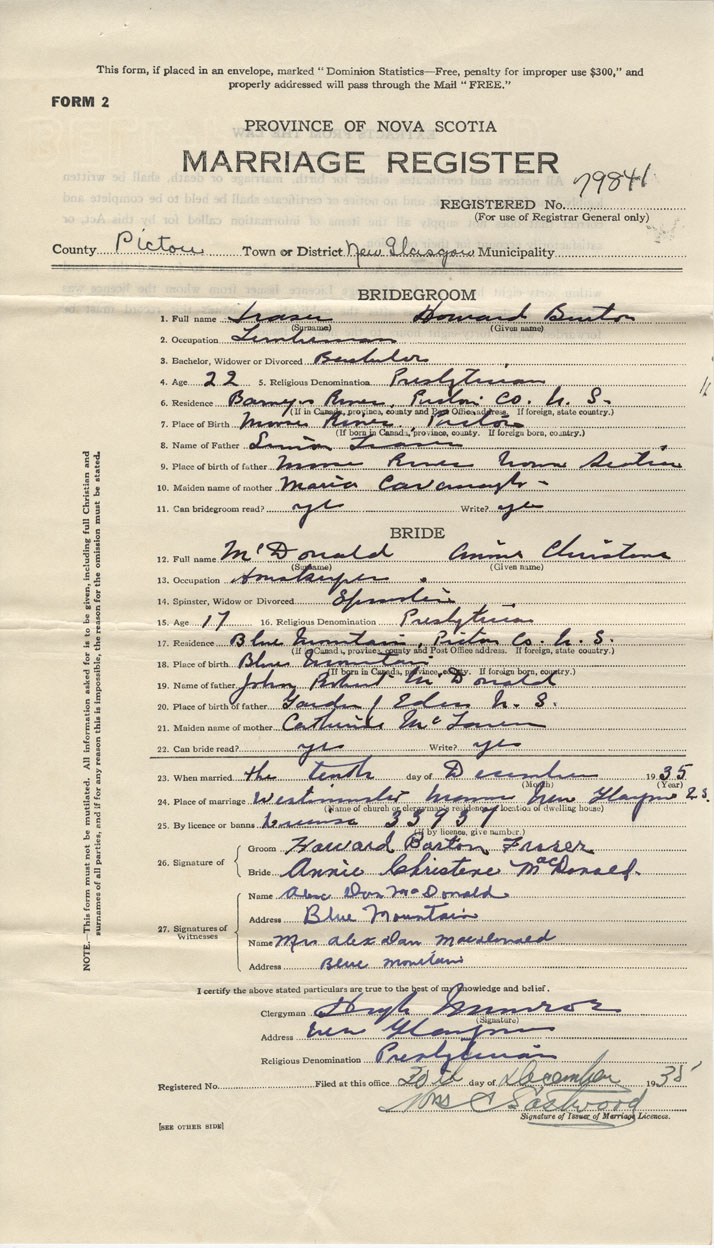 This form, if placed in an envelope, marked " Dominion Statistics—Free, penalty for improper use $300," and
properly addressed will pass through the Mail " FREE."
FORM 2
PROVINCE OF NOVA SCOTIA
MARRIAGE REGISTER
REGISTERED No.
(For use of Registrar General only)
County Pictou Town or District New Glasgow Municipality
BRIDEGROOM
1. Full name Fraser Howard Burton
(Surname) (Given name)
2. Occupation Lumberman
3. Bachelor, Widower or Divorced Bachelor
4. Age 22 5. Religious Denomination Presbyterian
6. Residence Barneys River, Pictou Co. N. S.
(If in Canada, province, county and Post Office address. If foreign, state country.)
7. Place of Birth River, Pictou
(If born in Canada, province, county. If foreign born, country.)
8. Name of Father Simon Fraser
9. Place of birth of father River Nova Scotia
10. Maiden name of mother Maria Cavanagh
11. Can bridegroom read? yes Write? yes
BRIDE
12. Full name McDonald Annie Christene
(Surname) (Given name)
13. Occupation Housekeeper
14. Spinster, Widow or Divorced Spinster
15. Age 17 16. Religious Denomination Presbyterian
17. Residence Blue Mountain, Pictou Co. N. S.
(If in Canada, province, county and Post Office address. If foreign, state country.)
18. Place of birth Blue Mountain
(If born in Canada, province, county. If foreign born, country.)
19. Name of father John Robert McDonald
20. Place of birth of father Garden of Eden N. S.
21. Maiden name of mother Catherine McLaren
22. Can bride read? yes Write? yes
23. When married the tenth day of December 1935
(Month) (Year)
24. Place of marriage Westminster Manse New Glasgow N.S.
(Name of church or clergyman's residence or location of dwelling house)
25. By licence or banns License 33937
(If by licence, give number.)
26. Signature of
Groom Howard Barton Fraser
Bride Annie Christene MacDonald.
27. Signatures of Witnesses
Name Alex Dan McDonald
Address Blue Mountain
Name Mrs Alex Dan Macdonald
Address Blue Mountain
I certify the above stated particulars are true to the best of my knowledge and belief.
Clergyman Hugh Munroe
(Signature)
Address New Glasgow
Religious Denomination Presbyterian
Registered No. Filed at this office 30th day of December 1935
Mrs Eastwood
Signature of Issuer of Marriage Licences.
[SEE OTHER SIDE]
NOTE.—This form must not be mutilated. All information asked for is to be given, including full Christian and
surnames of all parties, and if for any reason this is impossible, the reason for the omission must be stated.